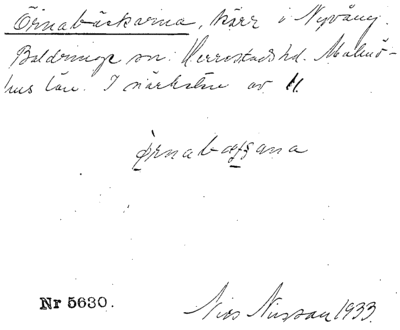 Örnabäckarna, kärr i Nyvång.
Baldringe sn. Herrestads hd. Malmö-
hus län. I närheten av 11.
örnabaʒana
Nr 5630.
Nils Nilsson 1933.